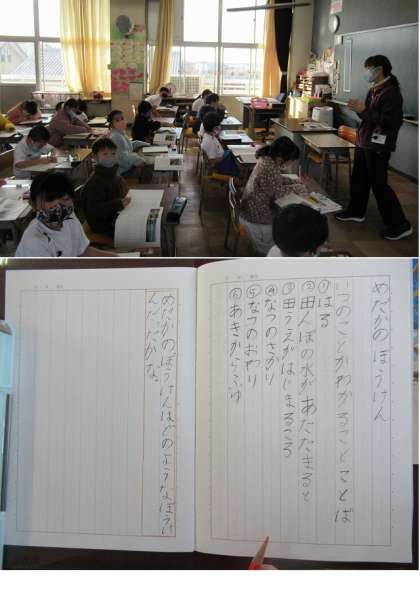 めだかのぼうけん
いつのことかわかることことば
①はる
②田んぼの水があたたまると
③田うえがはじまるころ
④なつのさかり
⑤なつのおわり
⑥あきからふゆ
めだかのぼうけんはどのようなぼうけ
んだったかな。